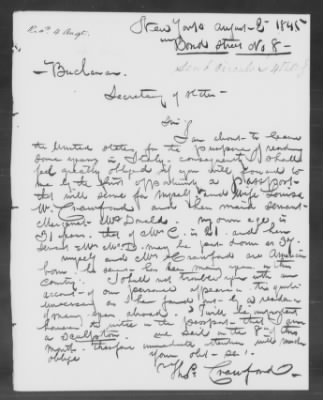 Rec. 4 Augt.
New York August 2 1845
Bond Street No 8 -
- Buchanan
Secretary of State -
Sir/
I am about to leave
the United States, for the purpose of residing
some years in Italy. consequently I shall
feel greatly obliged if you will forward to
me by the first opportunity a Passport
that will serve for myself and Wife Louisa
W. Crawford and her maid servant
Margaret McDonald. My own age, is
31 years. that of Mrs C. is 21. and her
servant Mrs McD. may be put down as 37.
myself and Mrs Crawford are American
born. the servant has been years in this
country. I shall not trouble you with an
account of our personal appearance
having found by a residence
of many years abroad. I will be
to write in the passport that I am
a Sculptor. We sail on the 8th of this
month. therefore immediate attention will much
oblige Your obt. se.
Thos. Crawford.